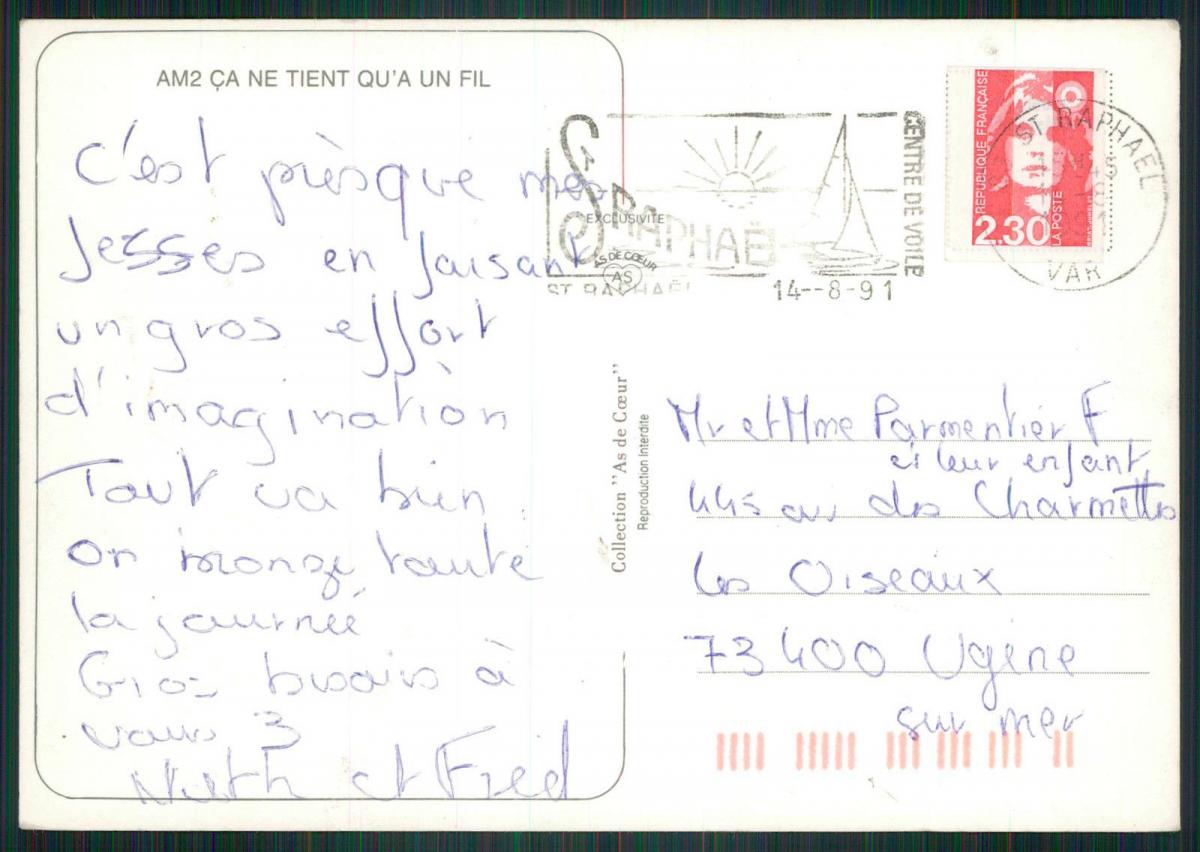 AM2 ÇA NE TIENT QU'A UN FIL
C'est prèsque mes
fesses en faisant
un gros effort
d'imagination
Tout va bien
on bronze toute
la journée
Gros bisous à
vous 3
et Fred
St RAPHAËL
CENTRE DE VOILE
EXCLUSIVITÉ
AS DE CŒUR
AS
ST RAPHAËL
14--8-91
REPUBLIQUE FRANÇAISE
2.30
LA POSTE
ST RAPHAEL
VAR
Collection "As de Cœur"
Reproduction Interdite
Mr et Mme Parmentier F
et leur enfant
445 av des Charmettes
les Oiseaux
73400 Ugine
sur mer